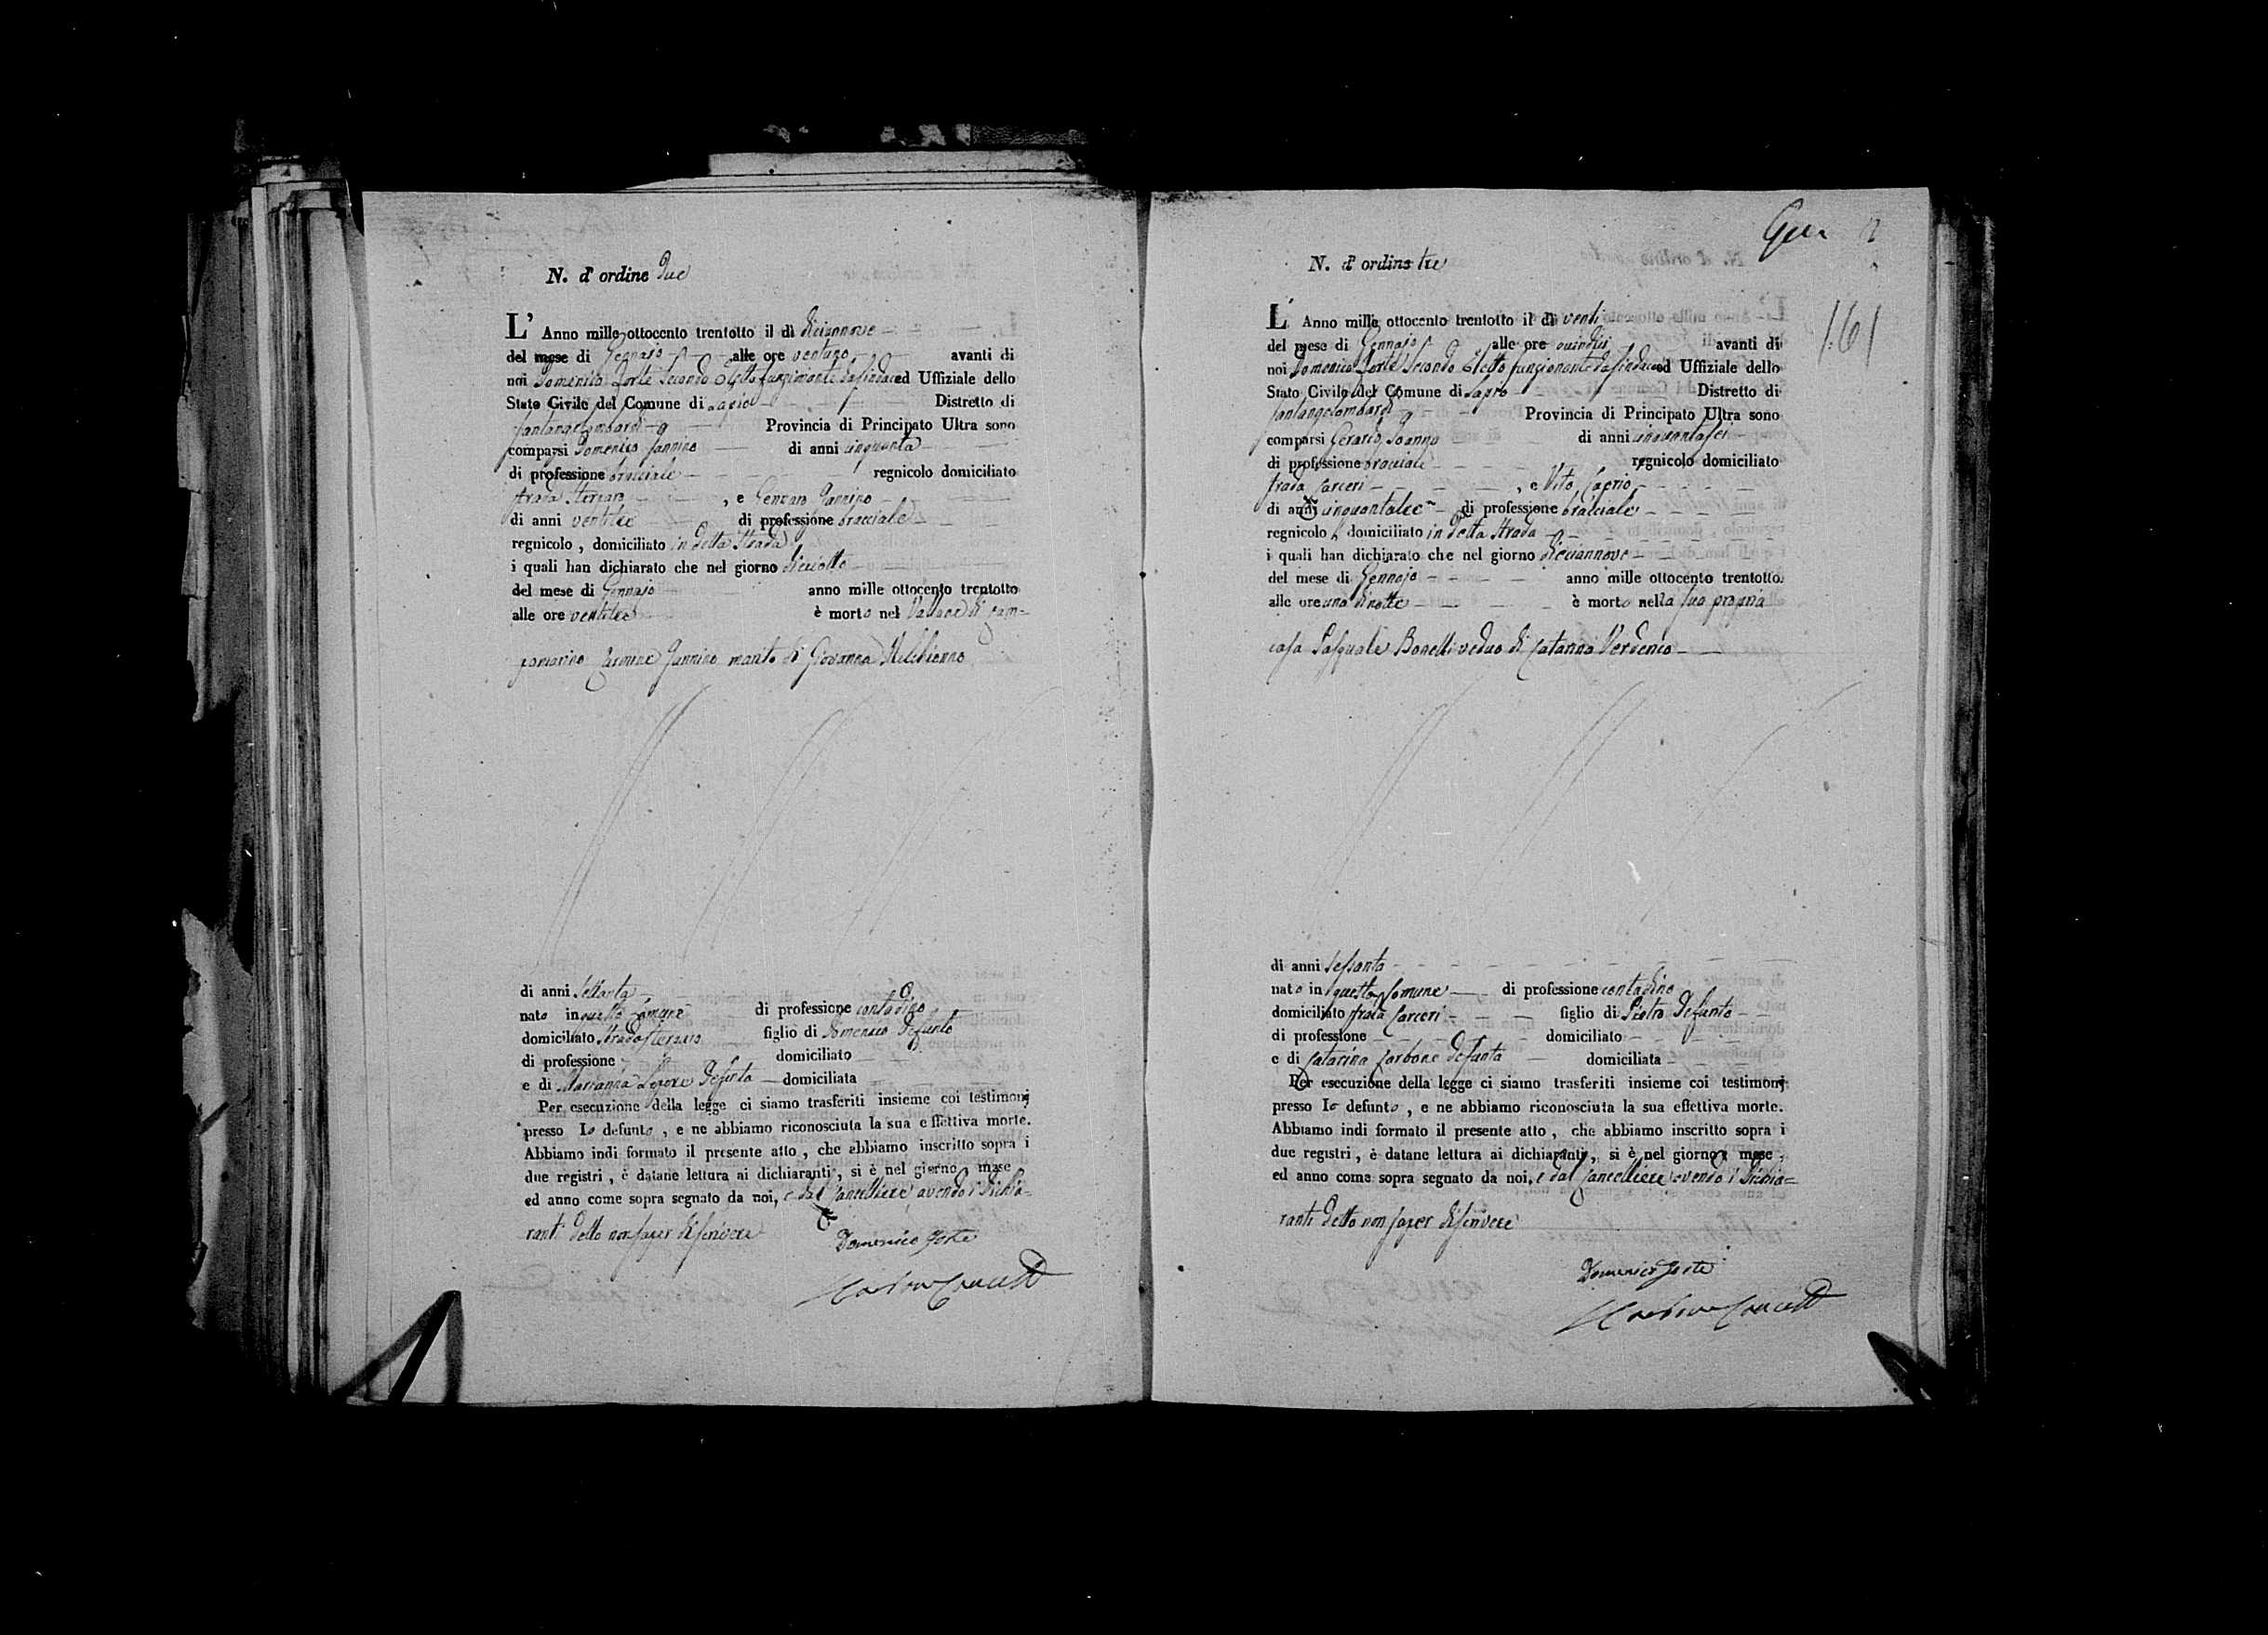 N. d' ordine Due
L' Anno mille ottocento trentotto il dì diciannove
del mese di Gennajo alle ore ventuno avanti di
noi Domenico Forte Secondo Eletto funzionante da Sindaco ed Uffiziale dello
Stato Civile del Comune di Lapio Distretto di
Santangelombardi Provincia di Principato Ultra sono
comparsi Domenico Jannino di anni cinquanta
di professione bracciale regnicolo domiciliato
strada , e Gennaro Jannino
di anni ventitre di professione bracciale
regnicolo , domiciliato in detta strada
i quali han dichiarato che nel giorno diciotto
del mese di Gennajo anno mille ottocento trentotto
alle ore ventitre è morto nel Vallone di
Carmine Jannino marito di Giovanna
di anni sessanta
nato in questo Comune di professione contadino
domiciliato strada figlio di Domenico defunto
di professione domiciliato
e di Marianna Lepore defunta domiciliata
Per esecuzione della legge ci siamo trasferiti insieme coi testimonj
presso lo defunto , e ne abbiamo riconosciuta la sua effettiva morte.
Abbiamo indi formato il presente atto , che abbiamo inscritto sopra i
due registri , è datane lettura ai dichiaranti , si è nel giorno , mese
ed anno come sopra segnato da noi, e dal Cancelliere avendo i dichia-
ranti detto non saper di scrivere
Domenico Forte
Gen
161
N. d' ordine tre
L' Anno mille ottocento trentotto il dì venti
del mese di Gennajo alle ore quindici avanti di
noi Domenico Forte Secondo Eletto funzionante da Sindaco ed Uffiziale dello
Stato Civile del Comune di Lapio Distretto di
Santangelombardi Provincia di Principato Ultra sono
comparsi Gerardo di anni cinquantasei
di professione bracciale regnicolo domiciliato
strada Carceri , e Vito Caprio
di anni cinquantatre di professione bracciale
regnicolo , domiciliato in detta strada
i quali han dichiarato che nel giorno diciannove
del mese di Gennajo anno mille ottocento trentotto
alle ore una di notte è morto nella sua propria
casa Pasquale Bonelli veduo di Catarina
di anni sessanta
nato in questo Comune di professione contadino
domiciliato strada Carceri figlio di Pietro defunto
di professione domiciliato
e di Catarina Carbone defunta domiciliata
Per esecuzione della legge ci siamo trasferiti insieme coi testimonj
presso lo defunto , e ne abbiamo riconosciuta la sua effettiva morte.
Abbiamo indi formato il presente atto , che abbiamo inscritto sopra i
due registri , è datane lettura ai dichiaranti , si è nel giorno , mese ,
ed anno come sopra segnato da noi, e dal Cancelliere avendo i dichia=
ranti detto non saper di scrivere
Domenico Forte